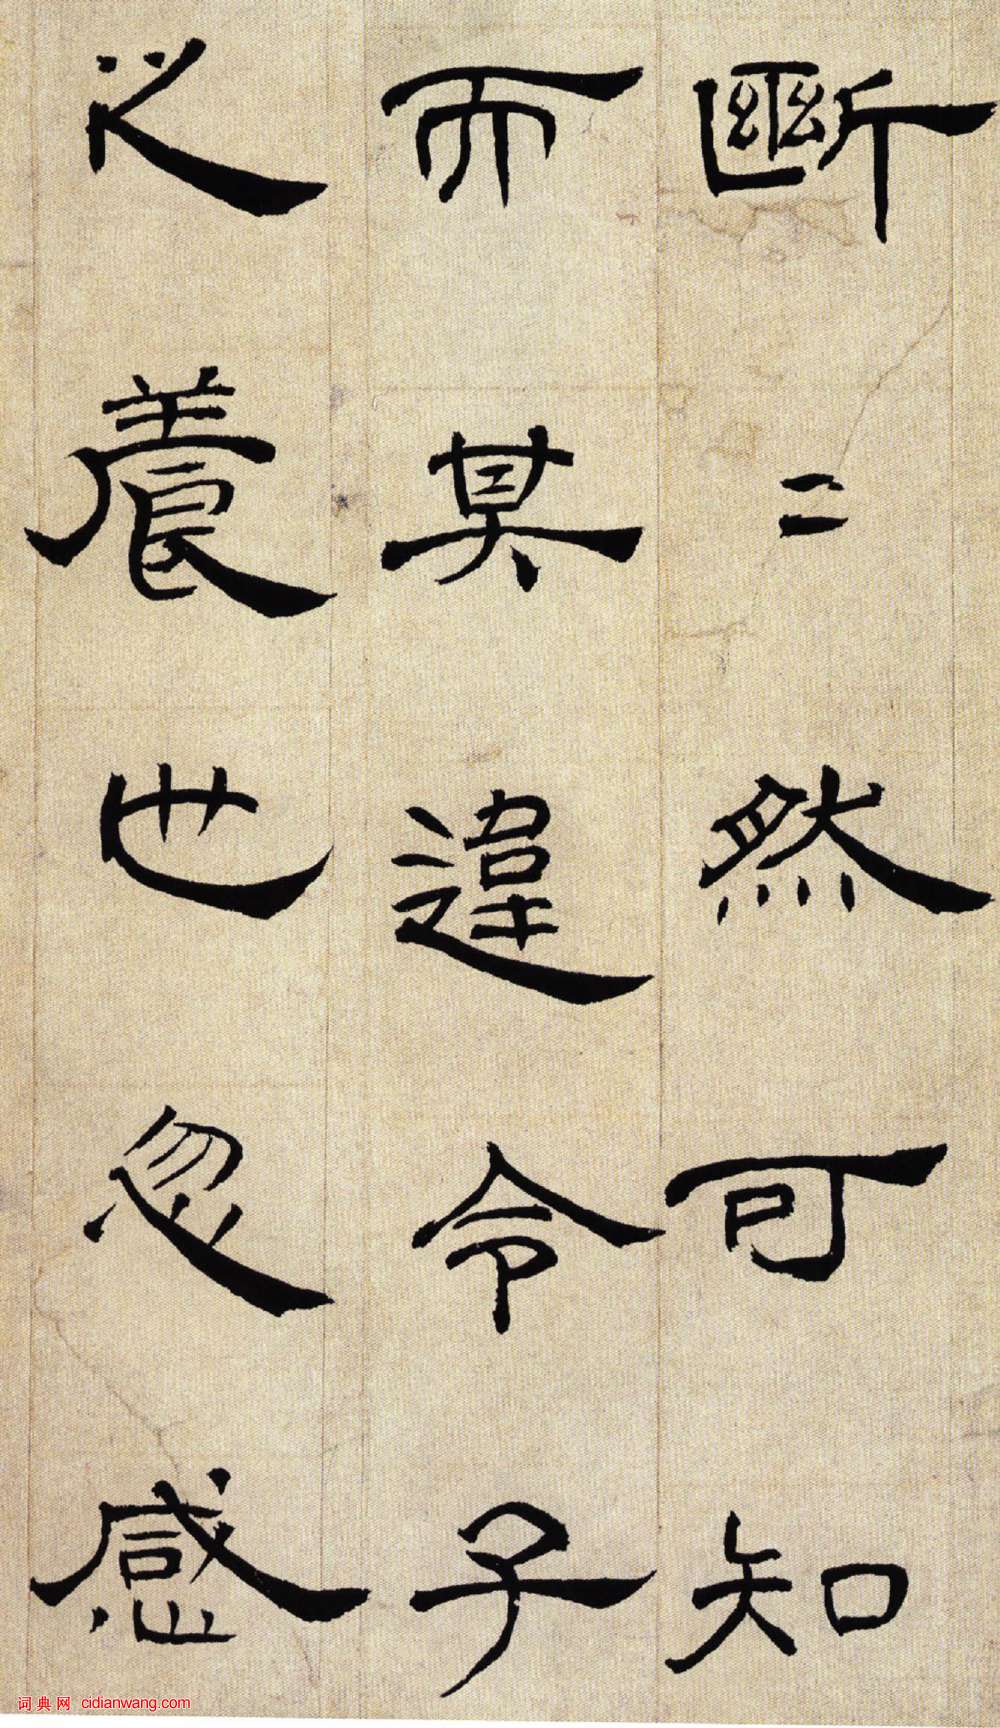 斷〻然可知
而其違令子
之養也忽感
词典网 cidianwang.com